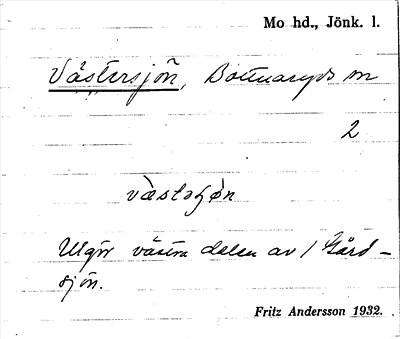 Mo hd., Jönk. l.
Västersjön, Bottnaryds sn
2
västəʃø̀n
Utgör västra delen av / Gård-
sjön.
Fritz Andersson 1932.